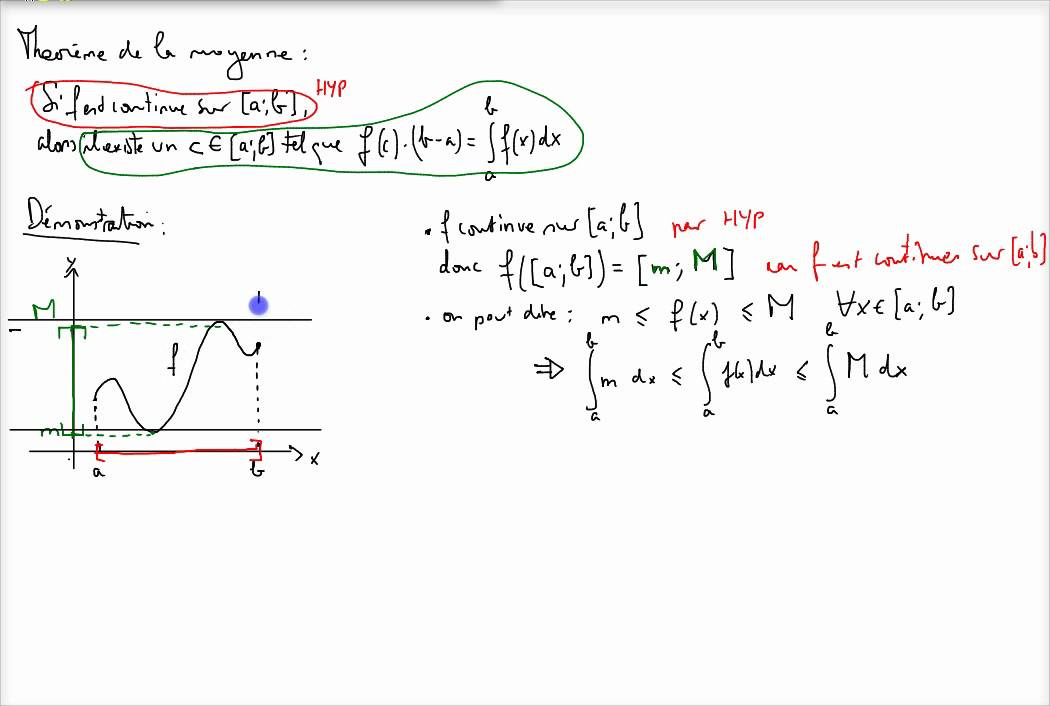 Théorème de la moyenne :
Si f est continue sur [a;b], HYP
alors il existe un c ∈ [a;b] tel que f(c)·(b-a) = ∫_a^b f(x) dx
Démonstration :
• f continue sur [a;b] par HYP
donc f([a;b]) = [m; M] car f est continue sur [a;b]
• on peut dire : m ≤ f(x) ≤ M ∀x ∈ [a;b]
⇒ ∫_a^b m dx ≤ ∫_a^b f(x) dx ≤ ∫_a^b M dx
y
M
f
m
x
a b